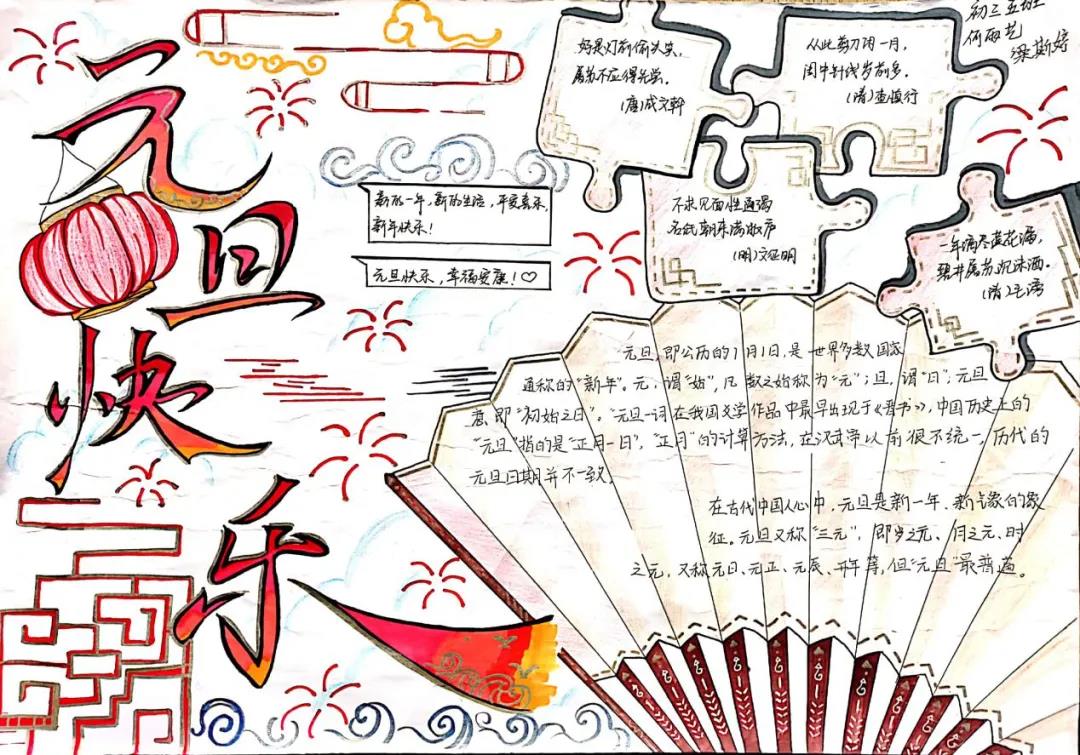 元旦快乐
初三五班
何雨艺
梁斯婷
好是灯前偷失笑,
屠苏不应得先尝。
(唐)成文幹
从此剪刀闲一月,
闺中针线岁前多。
(清)查慎行
不求见面惟通谒
名纸朝来满敝庐
(明)文征明
一年滴尽莲花漏,
碧井屠苏沉冻酒。
(清)毛滂
新的一年,新的生活,平安喜乐,
新年快乐!
元旦快乐,幸福安康!♡
元旦,即公历的1月1日,是世界多数国家
通称的“新年”。元,谓“始”,凡数之始称为“元”;旦,谓“日”;元旦
意即“初始之日”。“元旦一词在我国文学作品中最早出现于《晋书》,中国历史上的
“元旦”指的是“正月一日”,“正月”的计算方法,在汉武帝以前很不统一,历代的
元旦日期并不一致。
在古代中国人心中,元旦是新一年、新气象的象
征。元旦又称“三元”,即岁之元、月之元、时
之元,又称元日、元正、元辰、开年等,但“元旦”最普遍。